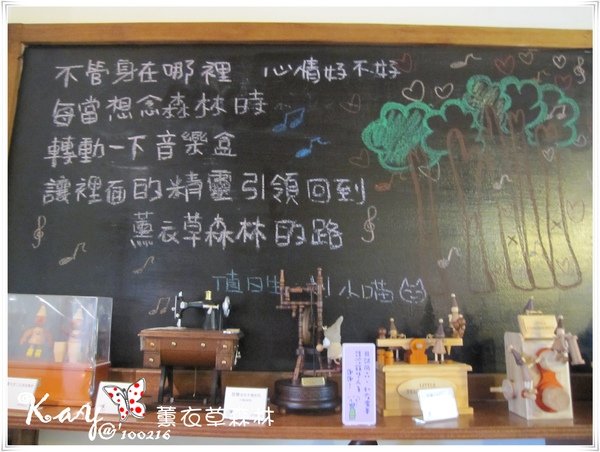 不管身在哪裡 心情好不好
每當想念森林時
轉動一下音樂盒
讓裡面的精靈引領回到
薰衣草森林的路
值日生 小喵
LITTLE
Kay
@'100216
薰衣草森林